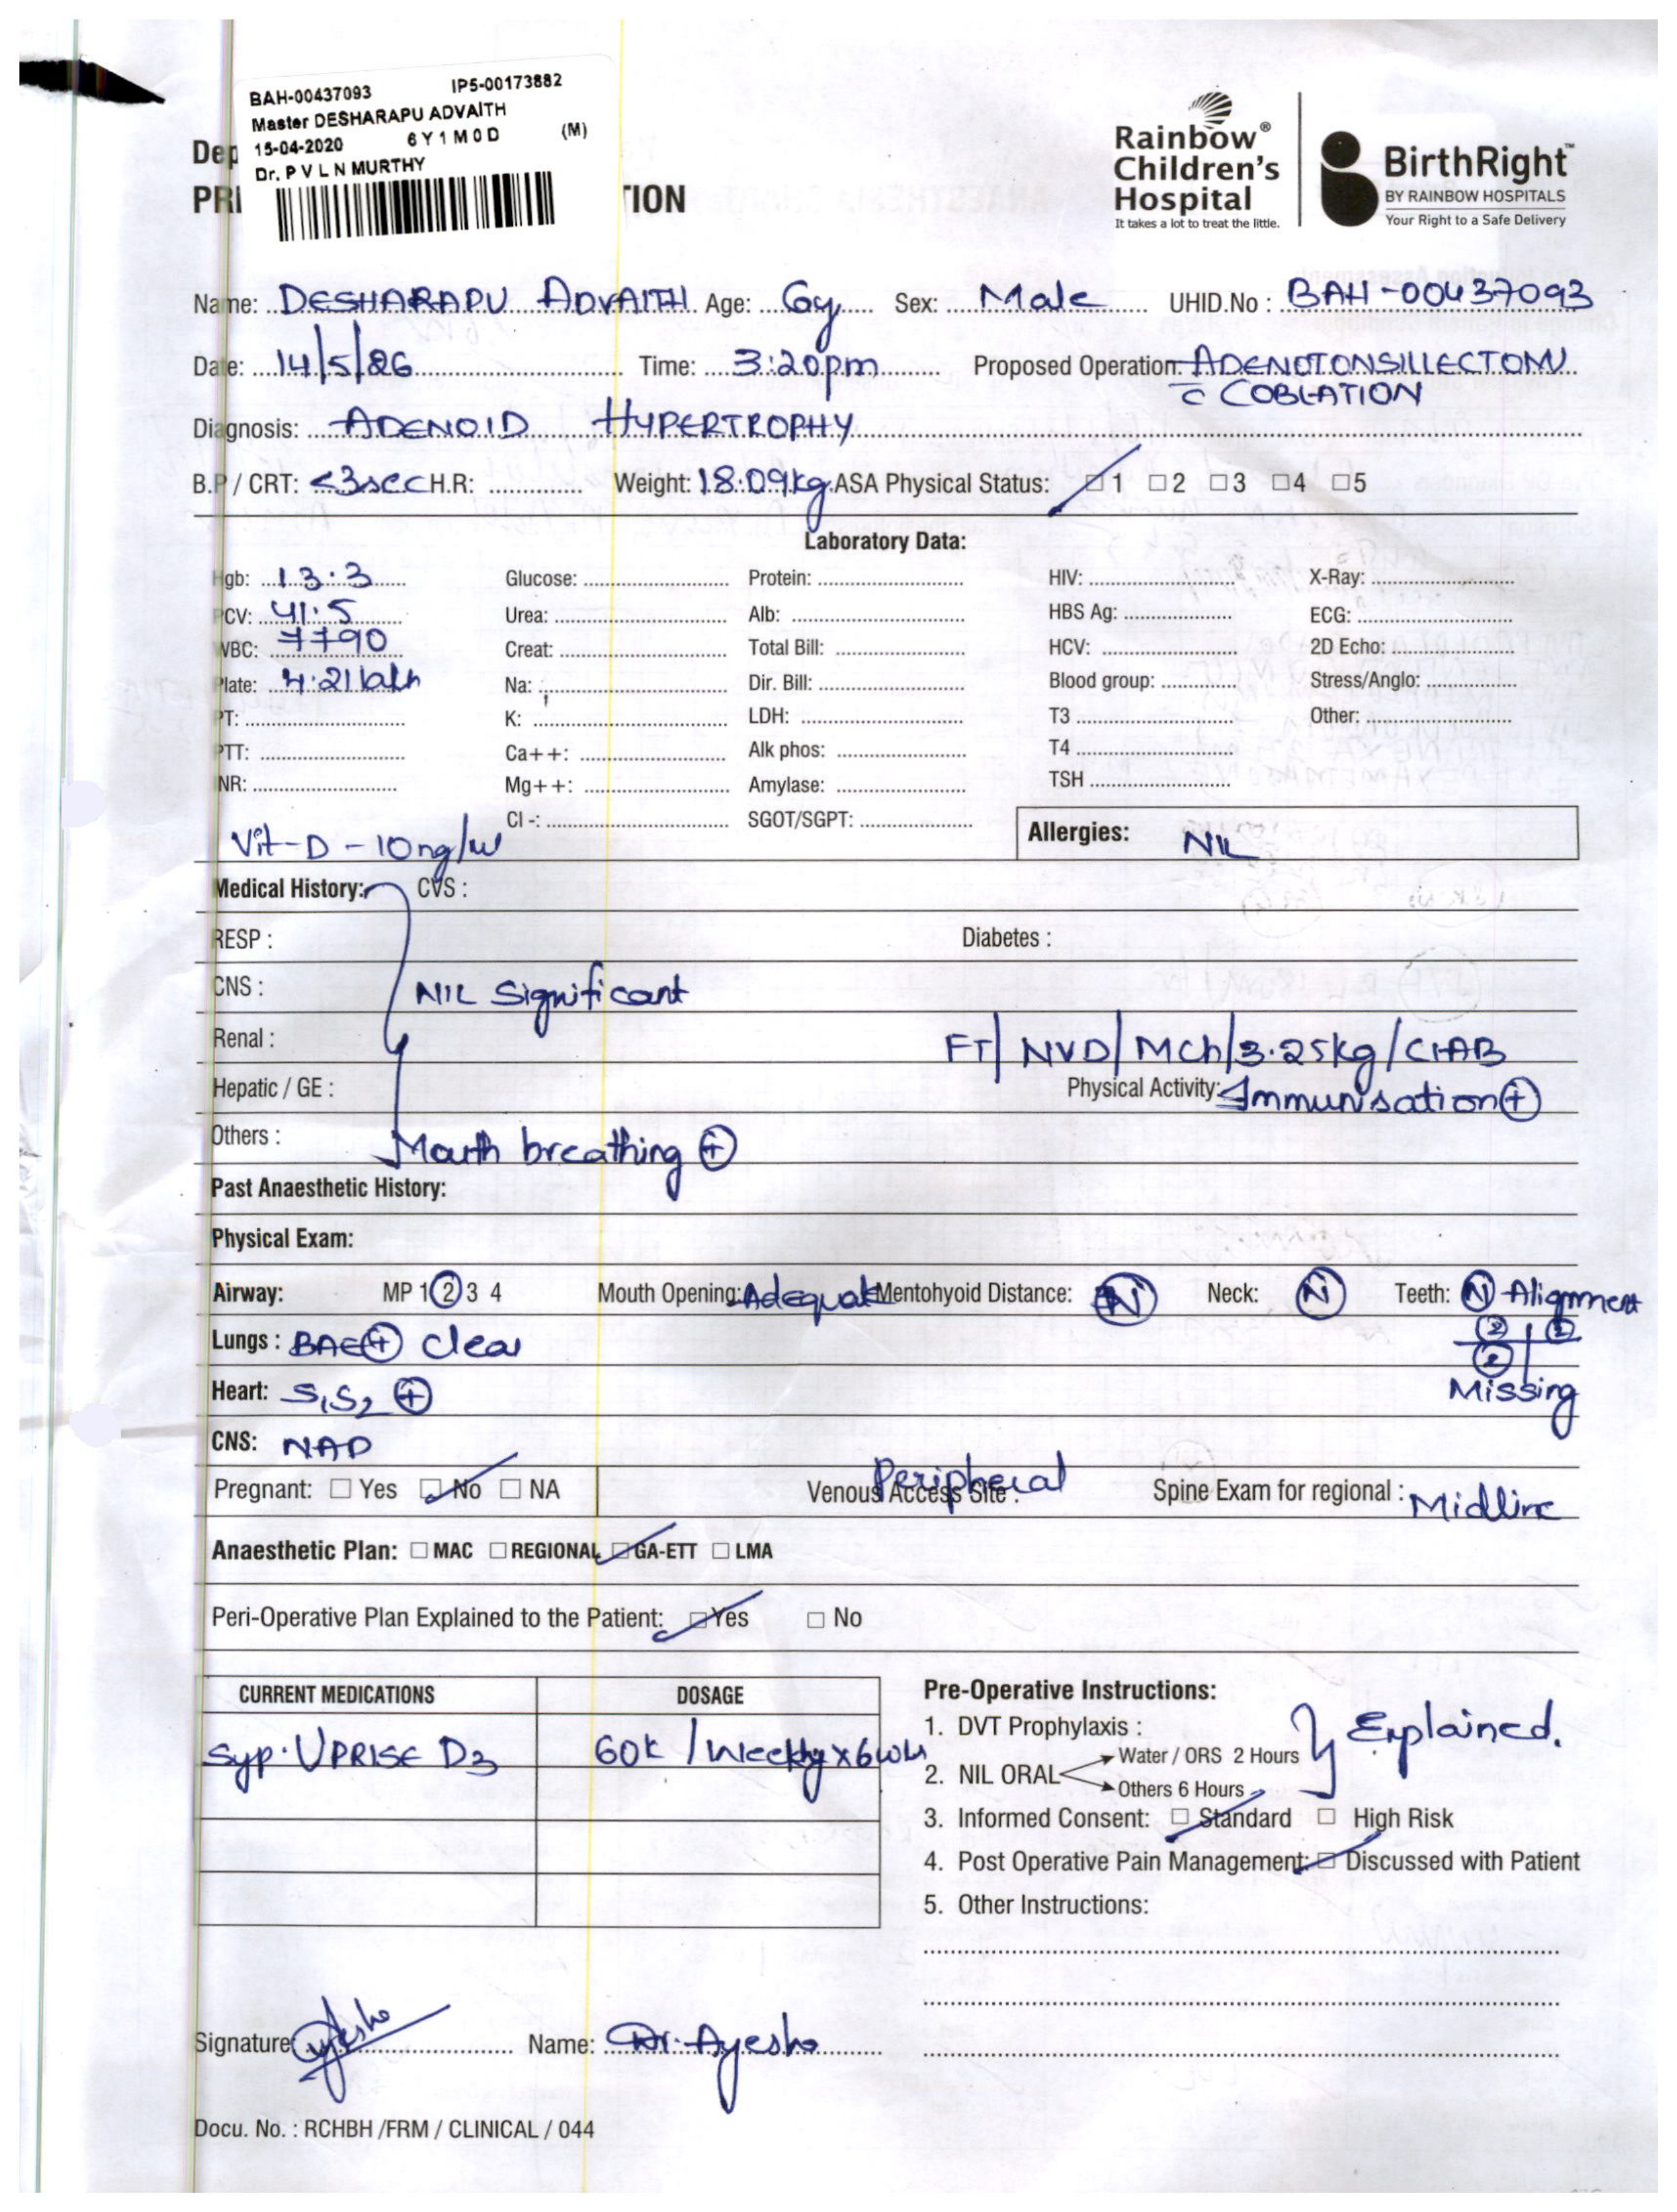 BAH-00437093 IP5-00173882
Master DESHARAPU ADVAITH
15-04-2020 6Y1M0D (M)
Dr. P V L N MURTHY
Dep
PRE
TION
Rainbow®
Children's
Hospital
It takes a lot to treat the little.
BirthRight™
BY RAINBOW HOSPITALS
Your Right to a Safe Delivery
Name: DESHARAPU ADVAITH Age: 6y Sex: Male UHID.No : BAH-00437093
Date: 14/5/26 Time: 3:20pm Proposed Operation: ADENOTONSILLECTOMY
c̄ COBLATION
Diagnosis: ADENOID HYPERTROPHY
B.P / CRT: <3sec H.R: Weight: 18.09kg ASA Physical Status: 1 2 3 4 5
Laboratory Data:
Hgb: 13.3 Glucose: Protein: HIV: X-Ray:
PCV: 41.5 Urea: Alb: HBS Ag: ECG:
WBC: 7790 Creat: Total Bill: HCV: 2D Echo:
Plate: 4.21 lakh Na: Dir. Bill: Blood group: Stress/Anglo:
PT: K: LDH: T3 Other:
PTT: Ca++: Alk phos: T4
INR: Mg++: Amylase: TSH
Cl -: SGOT/SGPT:
Vit-D - 10ng/ml Allergies: NIL
Medical History: CVS :
RESP : Diabetes :
CNS : NIL Significant
Renal : FT/ NVD/ MCh/3.25kg/CIAB
Hepatic / GE : Physical Activity: Immunisation⊕
Others : Mouth breathing ⊕
Past Anaesthetic History:
Physical Exam:
Airway: MP 1 2 3 4 Mouth Opening: Adequate Mentohyoid Distance: N Neck: N Teeth: N Alignment
2 2
Lungs : BAE⊕ clear 2
Heart: S1S2 ⊕ Missing
CNS: NAD
Pregnant: Yes No NA Venous Access Site : Peripheral Spine Exam for regional : Midline
Anaesthetic Plan: MAC REGIONAL GA-ETT LMA
Peri-Operative Plan Explained to the Patient: Yes No
CURRENT MEDICATIONS DOSAGE
Syp. UPRISE D3 60k / Weekly x 6wks
Pre-Operative Instructions:
1. DVT Prophylaxis : Explained.
2. NIL ORAL Water / ORS 2 Hours
Others 6 Hours
3. Informed Consent: Standard High Risk
4. Post Operative Pain Management: Discussed with Patient
5. Other Instructions:
Signature: Ayesha Name: Dr. Ayesha
Docu. No. : RCHBH /FRM / CLINICAL / 044